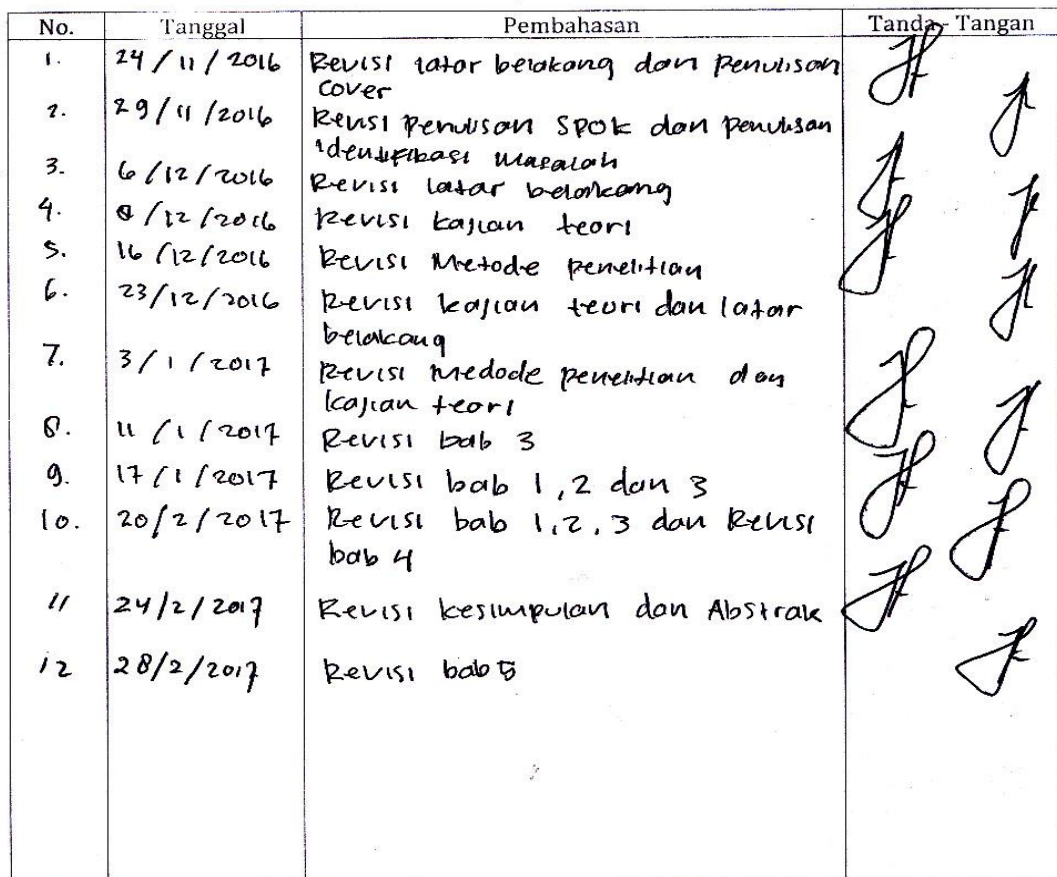 No. Tanggal Pembahasan Tanda - Tangan
1. 24/11/2016 Revisi latar belakang dan Penulisan
cover
2. 29/11/2016 Revisi Penulisan SPOK dan penulisan
identifikasi Masalah
3. 6/12/2016 Revisi latar belankang
4. 8/12/2016 Revisi kajian teori
5. 16/12/2016 Revisi Metode penelitian
6. 23/12/2016 Revisi kajian teori dan latar
belakang
7. 3/1/2017 Revisi Medode penelitian dan
kajian teori
8. 11/1/2017 Revisi bab 3
9. 17/1/2017 Revisi bab 1, 2 dan 3
10. 20/2/2017 Revisi bab 1, 2, 3 dan Revisi
bab 4
11 24/2/2017 Revisi kesimpulan dan Abstrak
12 28/2/2017 Revisi bab 5